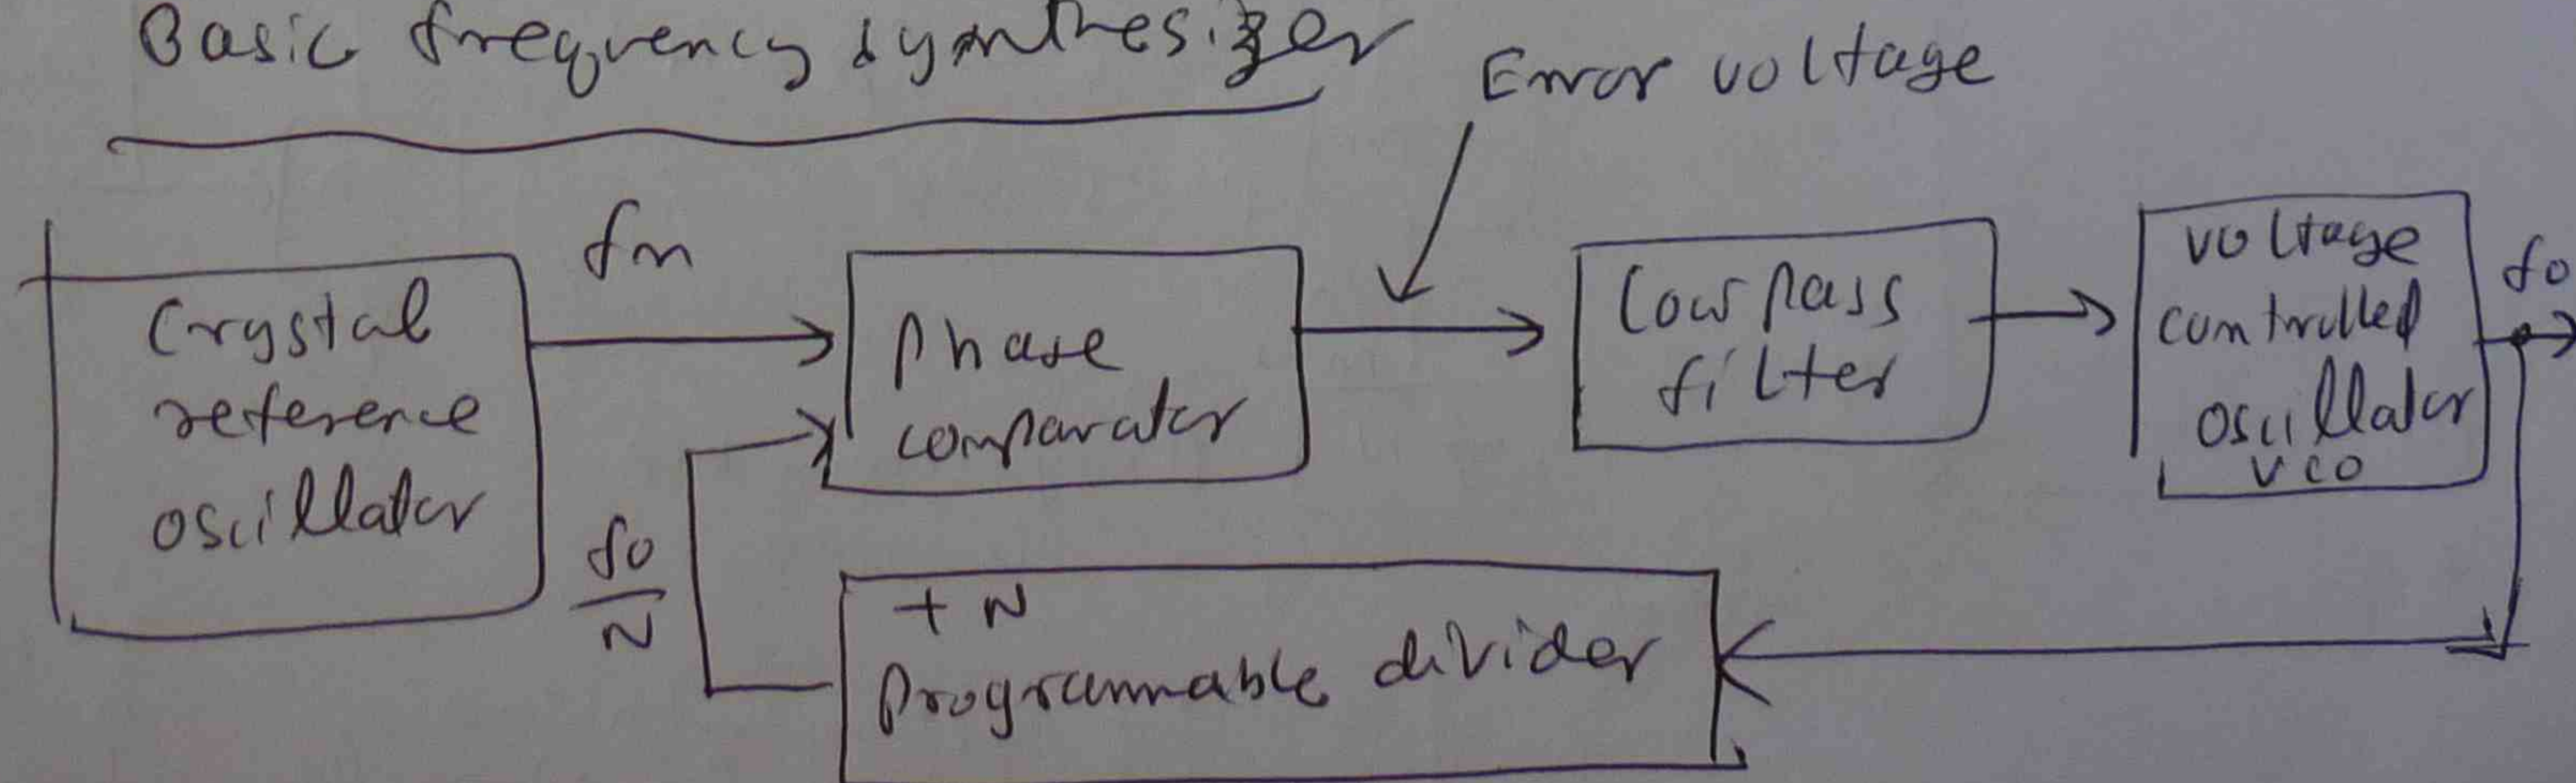 Basic frequency synthesizer
Error voltage
fn
fo
Crystal
reference
oscillator
Phase
comparator
Low pass
filter
voltage
controlled
oscillator
VCO
fo
N
+ N
Programmable divider